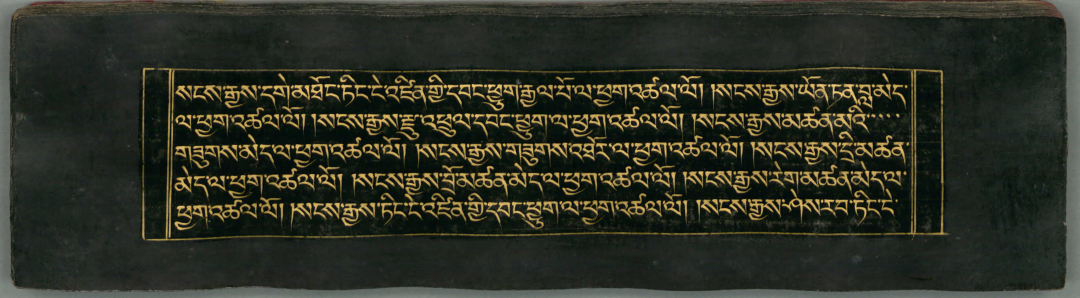 སངས་རྒྱས་དགེ་མཐོང་ཏིང་ངེ་འཛིན་གྱི་དབང་ཕྱུག་རྒྱལ་པོ་ལ་ཕྱག་འཚལ་ལོ། །སངས་རྒྱས་ཡོན་ཏན་བླ་མེད་
ལ་ཕྱག་འཚལ་ལོ། །སངས་རྒྱས་རྫུ་འཕྲུལ་དབང་ཕྱུག་ལ་ཕྱག་འཚལ་ལོ། །སངས་རྒྱས་མཚན་མའི་་་་་
གཟུགས་མེད་ལ་ཕྱག་འཚལ་ལོ། །སངས་རྒྱས་གཟུགས་འཐོར་ལ་ཕྱག་འཚལ་ལོ། །སངས་རྒྱས་དྲི་མཚན་
མེད་ལ་ཕྱག་འཚལ་ལོ། །སངས་རྒྱས་བྲོ་མཚན་མེད་ལ་ཕྱག་འཚལ་ལོ། །སངས་རྒྱས་རེག་མཚན་མེད་ལ་
ཕྱག་འཚལ་ལོ། །སངས་རྒྱས་ཏིང་ངེ་འཛིན་གྱི་དབང་ཕྱུག་ལ་ཕྱག་འཚལ་ལོ། །སངས་རྒྱས་ཤེས་རབ་ཏིང་ངེ་